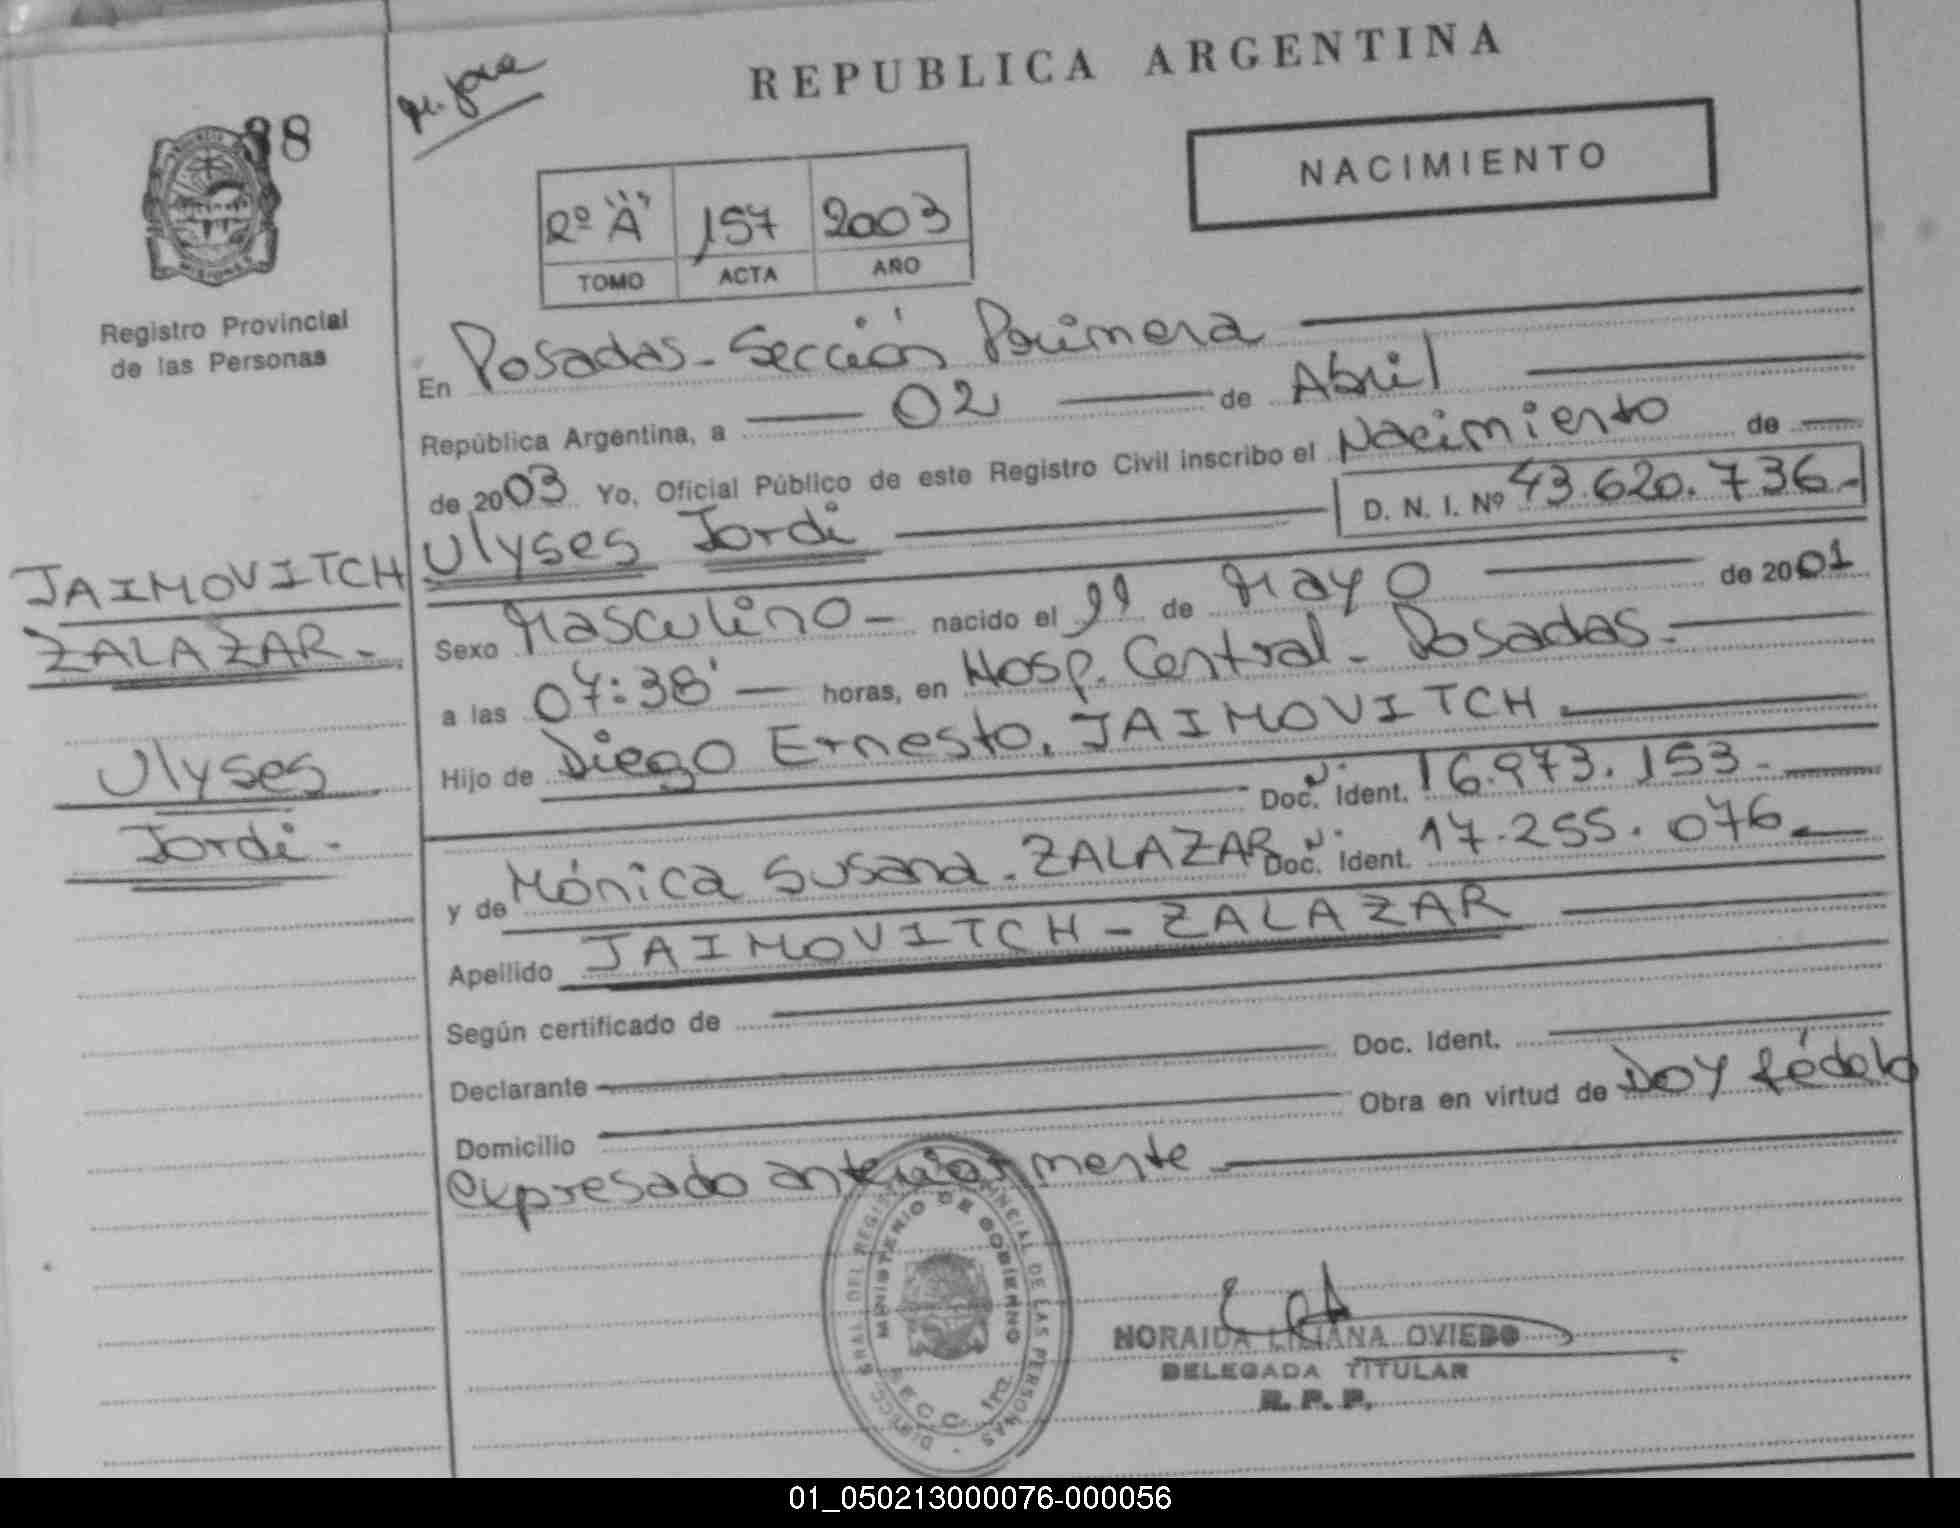 REPUBLICA ARGENTINA
38
NACIMIENTO
2º "A" 157 2003
TOMO ACTA AÑO
MISIONES
Registro Provincial
de las Personas
En Posadas - Sección Primera
República Argentina, a 02 de Abril
de 2003 Yo, Oficial Público de este Registro Civil inscribo el Nacimiento de
Ulyses Jordi D. N. I. Nº 43.620.736.-
JAIMOVITCH
ZALAZAR.-
Ulyses
Jordi.-
Sexo Masculino - nacido el 11 de Mayo de 2001
a las 07:38' horas, en Hosp. Central - Posadas.-
Hijo de Diego Ernesto. JAIMOVITCH.
Doc. Ident. 16.973.153.-
y de Mónica Susana. ZALAZAR Doc. Ident. 17.255.076.-
Apellido JAIMOVITCH - ZALAZAR
Según certificado de
Declarante Doc. Ident.
Domicilio Obra en virtud de Doy fé de lo
expresado anteriormente
MINISTERIO DE GOBIERNO
NORAIDA LILIANA OVIEDO
DELEGADA TITULAR
R. P. P.
01_050213000076-000056